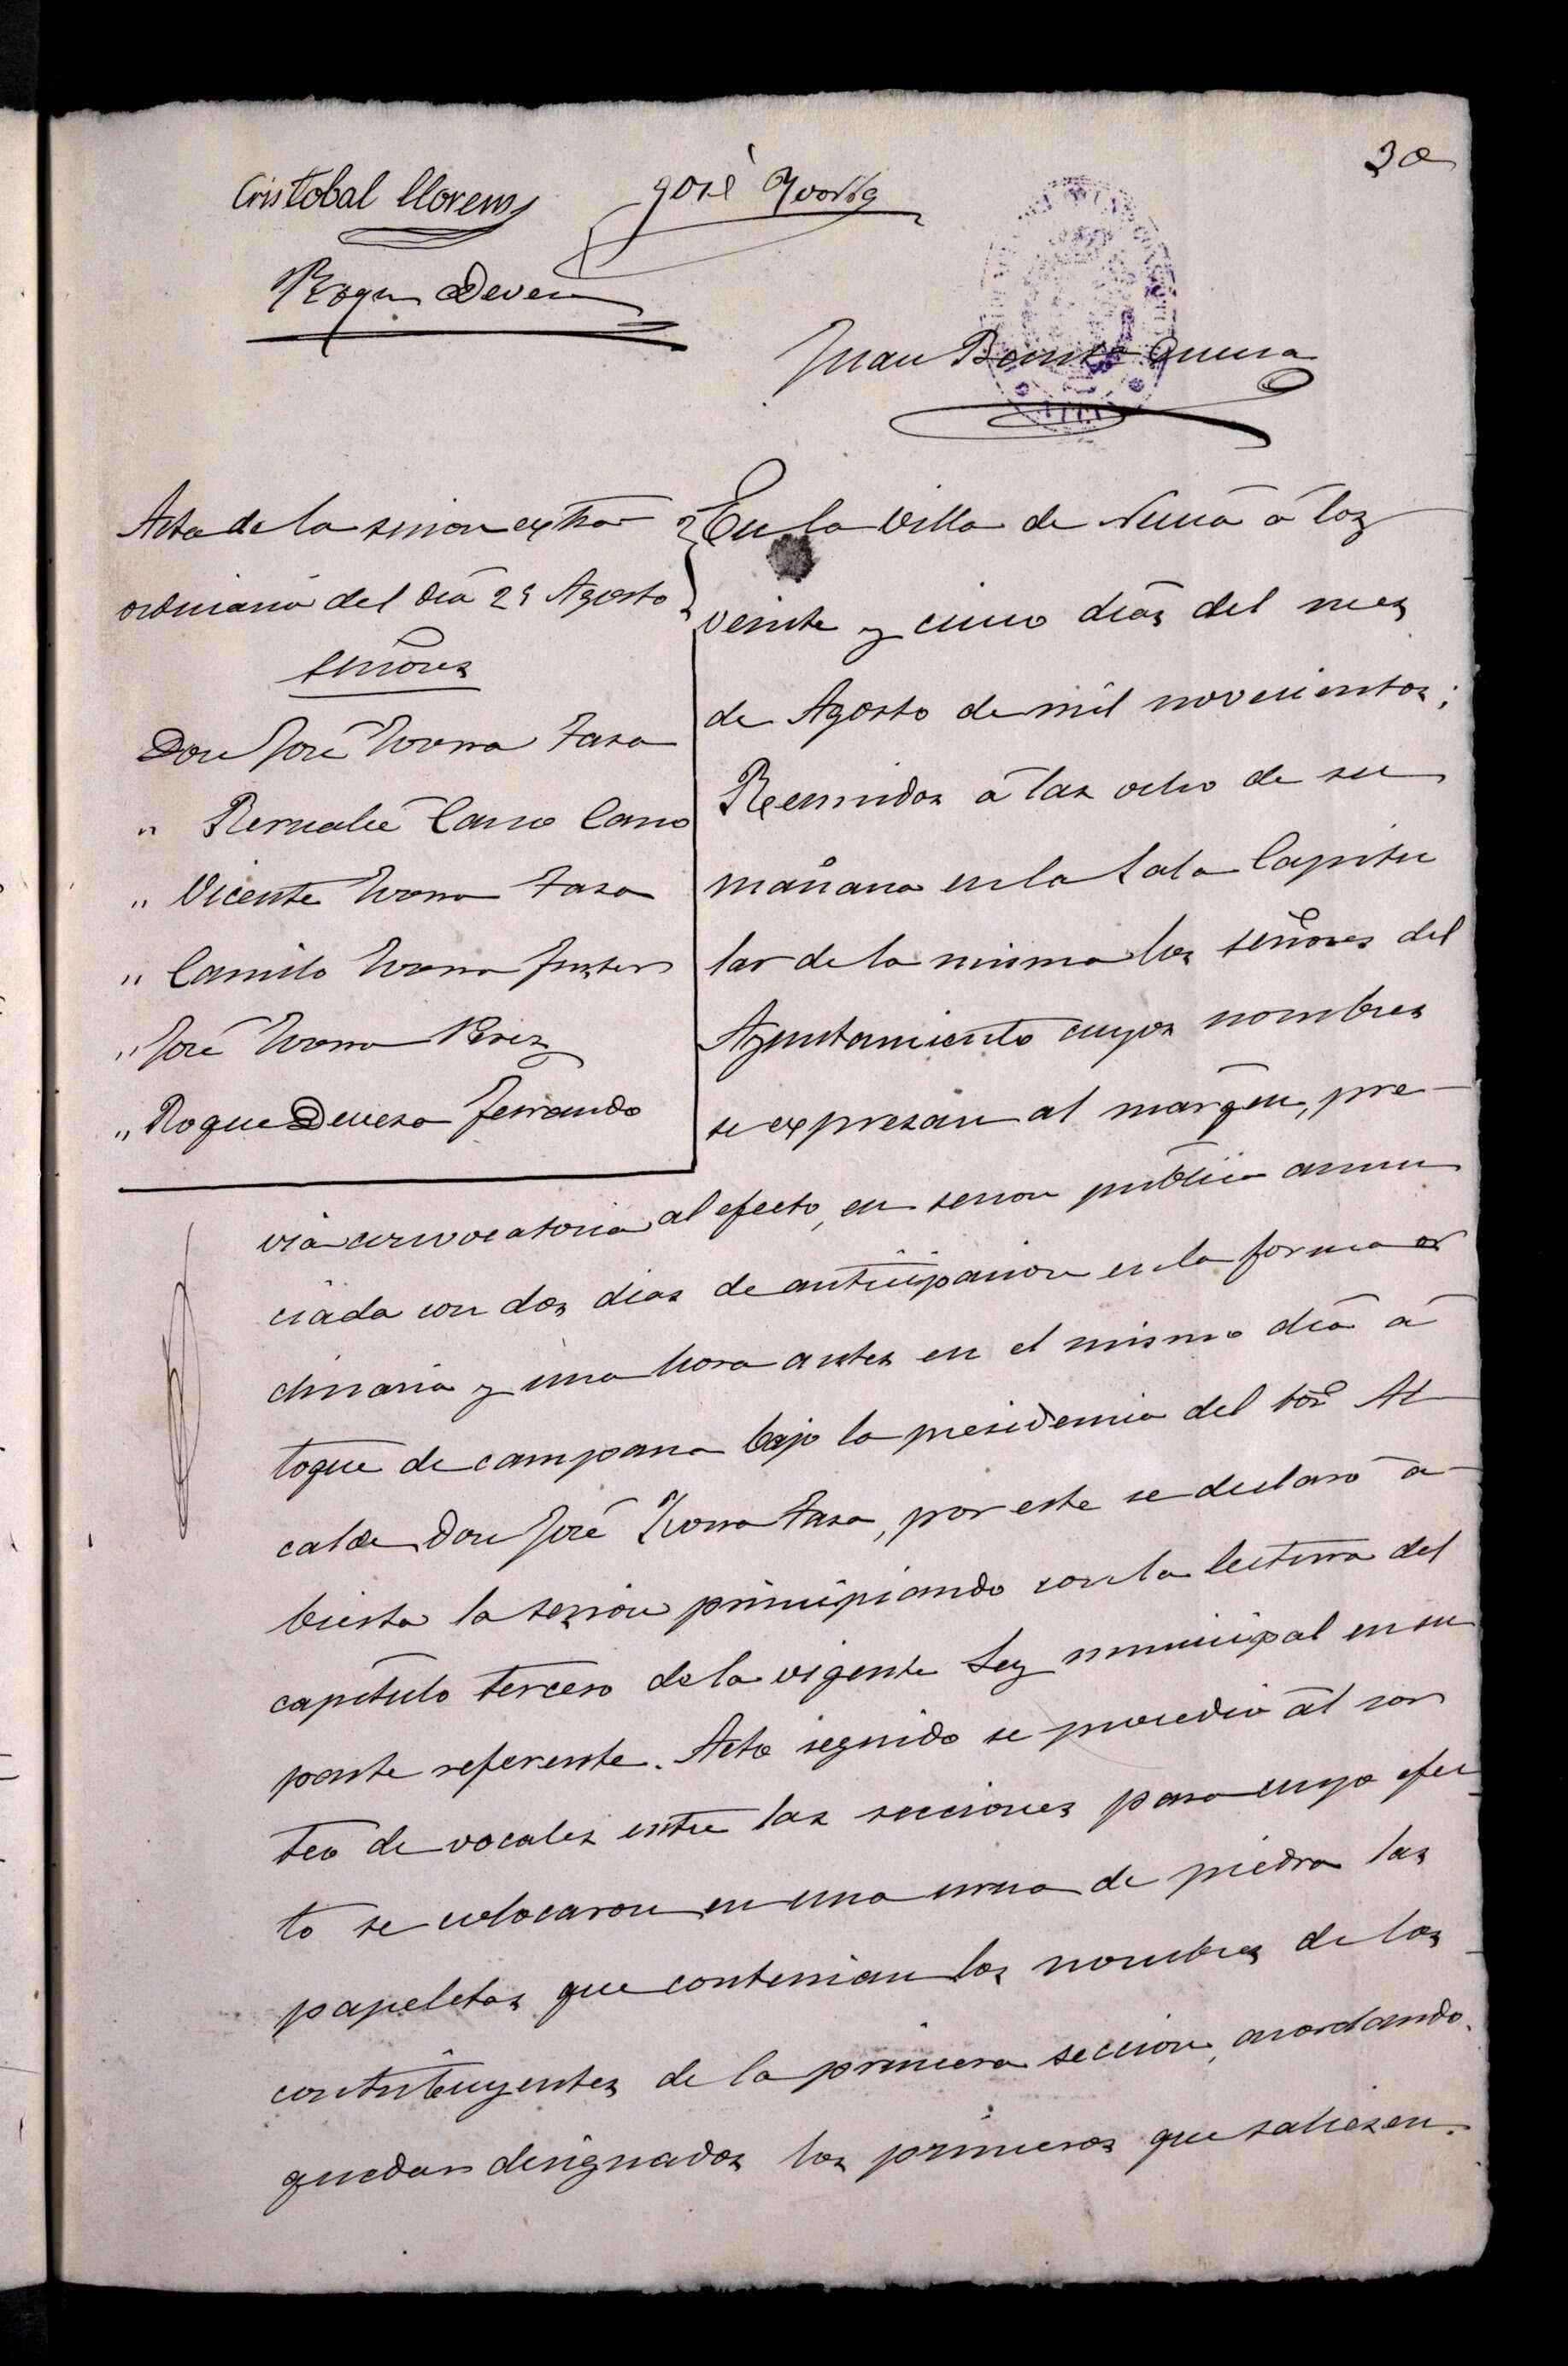 30
Cristobal Llorens José Yvorra
Roque Devesa
Juan Bauta
Acta de la sesion extra
ordinaria del dia 25 Agosto
Señores
Don José Ivorra Fasa
" Bernabé Cano Cano
" Vicente Ivorra Fasa
" Camilo Ivorra Fuster
" José Ivorra Perez
" Roque Devesa Ferrando
En la Villa de Nucia á los
veinte y cinco dias del mes
de Agosto de mil novecientos;
Reunidos á las ocho de su
mañana en la Sala Capitu
lar de la misma los señores del
Ayuntamiento cuyos nombres
se expresan al margen, pre-
via convocatoria al efecto, en sesion publica anun
ciada con dos dias de anticipacion en la forma or
dinaria y una hora antes en el mismo dia á
toque de campana bajo la presidencia del Sor Al
calde Don José Ivorra Fasa, por este se declaró a
bierta la sesion principiando con la lectura del
capitulo tercero de la vigente Ley municipal en su
parte referente. Acto seguido se procedio al sor
teo de vocales entre las secciones para cuyo efec
to se colocaron en una urna de piedra las
papeletas que contenian los nombres de los
contribuyentes de la primera seccion, acordando
quedar designados los primeros que saliesen.